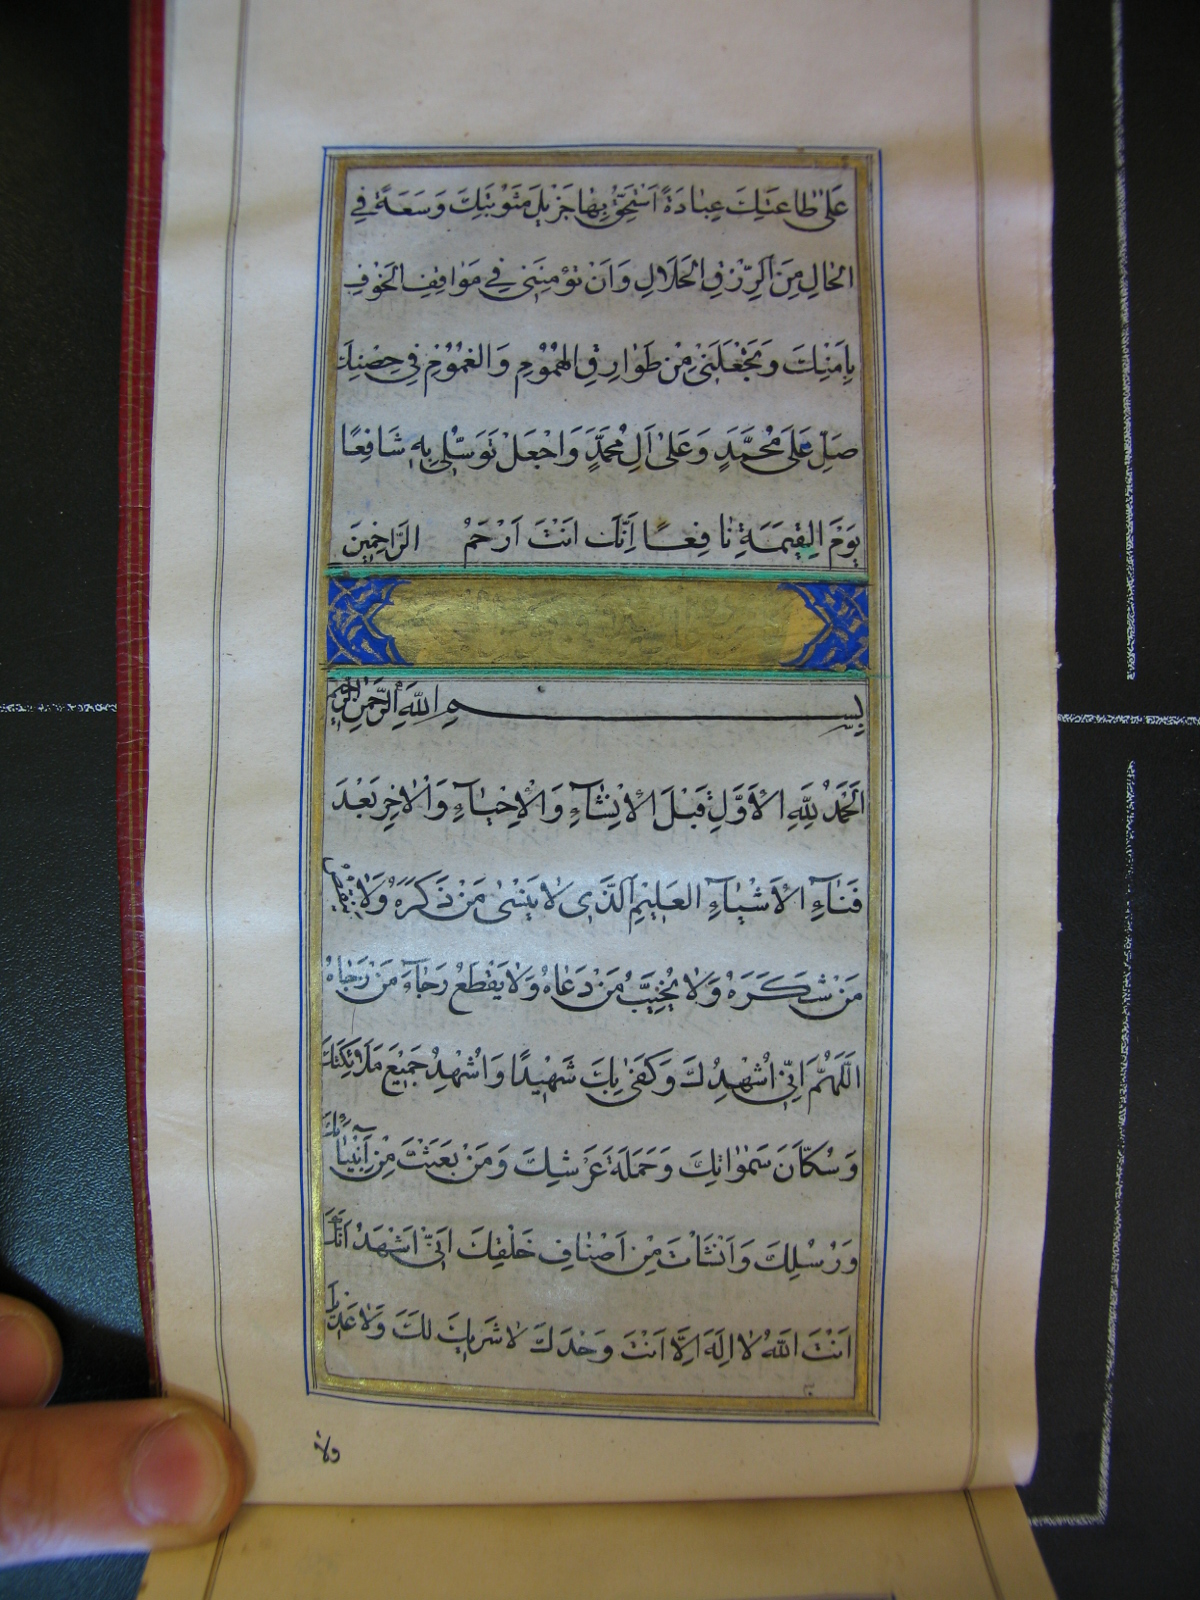 عَلىٰ طٰاعَتِكَ عِبٰادَةً اَسْتَحِقُّ بِهٰا جَزيلَ مَثُوبَتِكَ وَسَعَةً فِي
الْحٰالِ مِنَ الرِّزْقِ الْحَلَالِ وَاَنْ تُؤْمِنَنى فِي مَوٰاقِفِ الْخَوْفِ
بِاَمْنِكَ وَتَجْعَلَنى مِنْ طَوٰارِقِ الْهُمُومِ وَالْغُمُومِ فى حِصْنِكَ
صَلِّ عَلىٰ مُحَمَّدٍ وَعَلىٰ اٰلِ مُحَمَّدٍ وَاجْعَلْ تَوَسُّلى بِهِ شَافِعًا
يَوْمَ الْقِيٰمَةِ نٰافِعًا اِنَّكَ اَنْتَ اَرْحَمُ الرَّاحِمِينَ
بِسْمِ اللّٰهِ الرَّحْمٰنِ الرَّحِيمِ
اَلْحَمْدُ لِلّٰهِ الْاَوَّلِ قَبْلَ الْاِنْشٰآءِ وَالْاِحْيٰآءِ وَالْاٰخِرِ بَعْدَ
فَنٰآءِ الْاَشْيٰآءِ الْعَلِيمِ الَّذى لٰا يَنْسىٰ مَنْ ذَكَرَهُ وَلٰا يَنْقُصُ
مَنْ شَكَرَهُ وَلٰا يُخَيِّبُ مَنْ دَعٰاهُ وَلٰا يَقْطَعُ رَجٰآءَ مَنْ رَجٰاهُ
اَللّٰهُمَّ اِنّى اُشْهِدُكَ وَكَفىٰ بِكَ شَهِيدًا وَاُشْهِدُ جَمِيعَ مَلٰائِكَتِكَ
وَسُكَّانَ سَمٰوٰاتِكَ وَحَمَلَةَ عَرْشِكَ وَمَنْ بَعَثْتَ مِنْ اَنْبِيٰآئِكَ
وَرُسُلِكَ وَاَنْشَاْتَ مِنْ اَصْنٰافِ خَلْقِكَ اَنّى اَشْهَدُ اَنَّكَ
اَنْتَ اللّٰهُ لٰا اِلٰهَ اِلَّا اَنْتَ وَحْدَكَ لٰا شَرِيكَ لَكَ وَلٰا عَدِيلَ
ولا